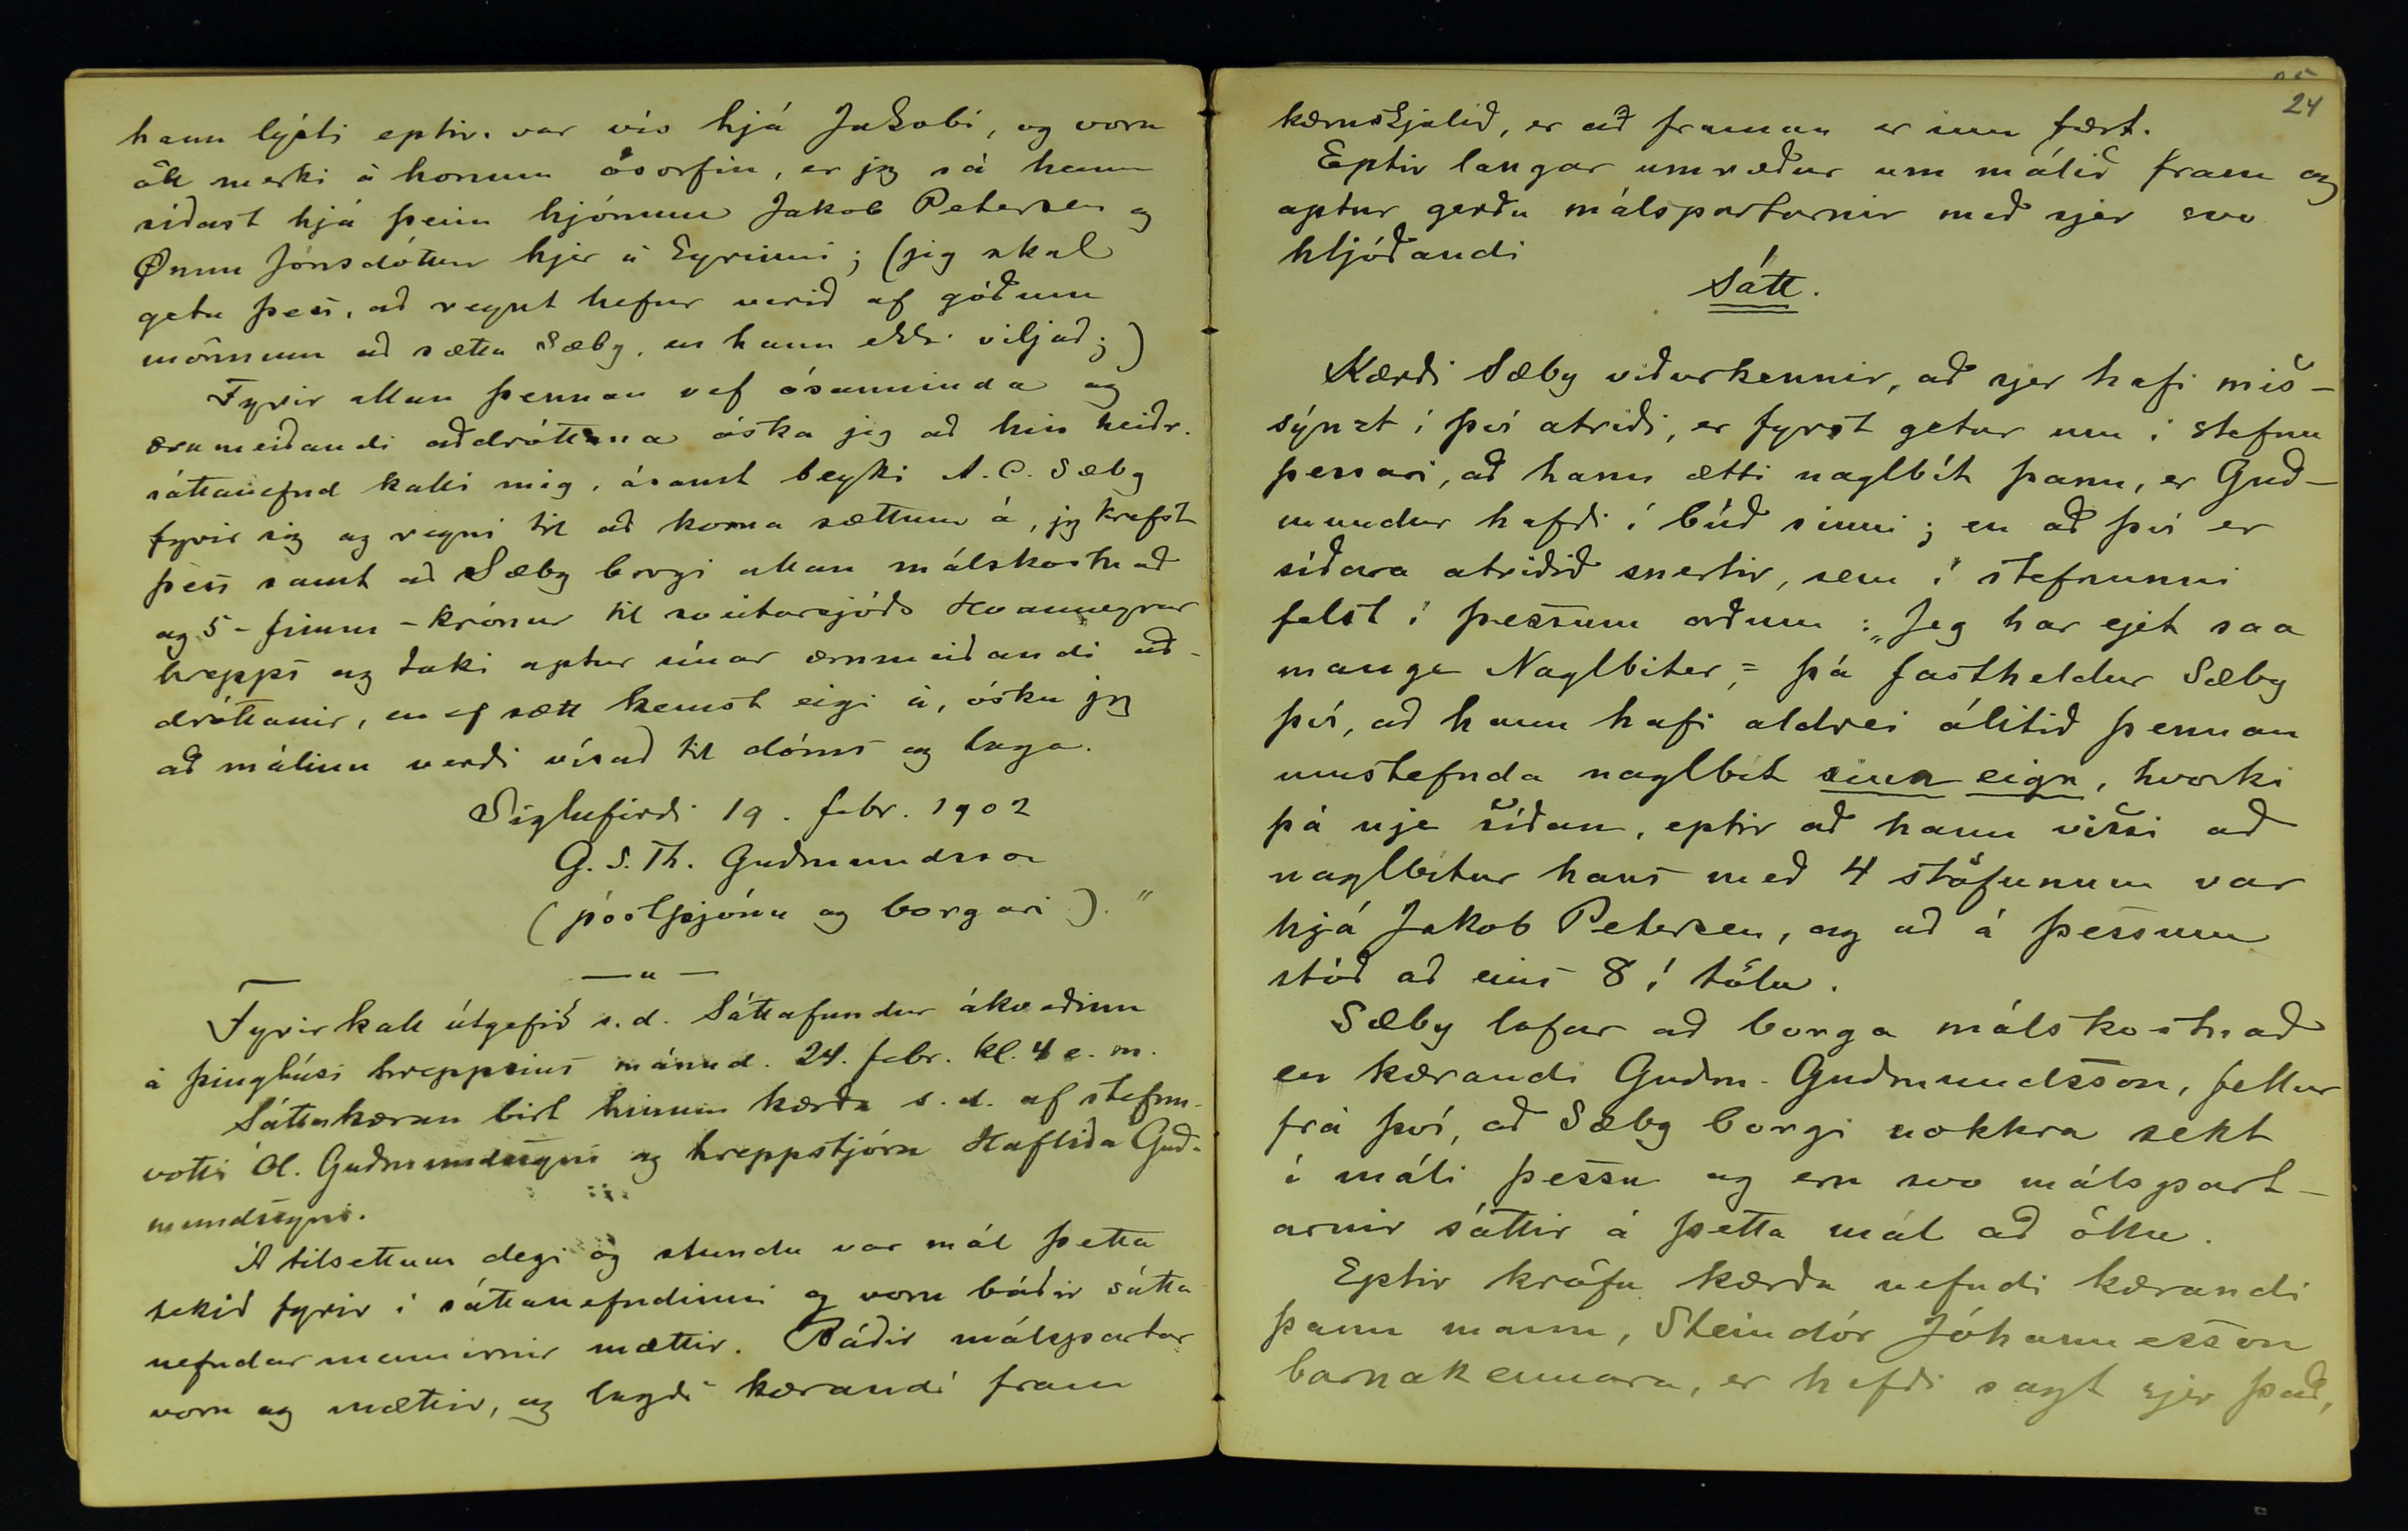 hann lýsti eptir. var vís hjá Jakobi, og voru
öll merki á honum ósorfin, er jeg sá hann
síðast hjá þeim hjónum Jakob Petersen og
Önnu Jónsdóttur hjer á Eyrinni; (jeg skal
geta þess, að reynt hefur verið af góðum
mönnum að sætta Sæby, en hann ekki viljað;)
Fyrir allan þennan vef ósanninda og
ærumeiðandi aðdróttana óska jeg að hin heiðr.
sáttanefnd kalli mig, ásamt beyki A. C. Sæby
fyrir sig og reyni til að koma sættum á, jeg krefst
þess samt að Sæby borgi allan málskostnað
og 5 - fimm - krónur til sveitarsjóðs Hvanneyrar
hrepps og taki aptur sínar ærumeiðandi að-
dróttanir, en ef sætt kemst eigi á, óska jeg
að málinu verði vísað til dóms og laga.
Siglufirði 19. febr. 1902
G. S. Th. Guðmundsson
(póstþjónn og borgari)."
—"—
Fyrirkall útgefið s. d. Sáttafundur ákveðinn
á þinghúsi hreppsins mánud. 24. febr. kl. 4 e. m.
Sáttakæran birt hinum kærða s. d. af stefnu-
votti Ól. Guðmundssyni og hreppstjóra Hafliða Guð-
mundssyni.
Á tilsettum degi og stundu var mál þetta
tekið fyrir í sáttanefndinni og voru báðir sátta
nefndarmennirnir mættir. Báðir málspartar
voru og mættir, og lagði kærandi fram
24
kæruskjalið, er að framan er inn fært.
Eptir langar umræður um málið fram og
aptur gerðu málspartarnir með sjer svo
hljóðandi
Sátt.
Kærði Sæby viðurkennir, að sjer hafi mis-
sýnzt í því atriði, er fyrst getur um í stefnu
þessari, að hann ætti naglbít þann, er Guð-
mundur hafði í búð sinni; en að því er
síðara atriðið snertir, sem í stefnunni
felst í þessum orðum: „Jeg har ejet saa
mange Naglbiter," þá fastheldur Sæby
því, að hann hafi aldrei álitið þennan
umstefnda naglbít sína eign, hvorki
þá nje síðan, eptir að hann vissi að
naglbítur hans með 4 stöfunum var
hjá Jakob Petersen, og að á þessum
stóð að eins 8 í tölu.
Sæby lofar að borga málskostnað
en kærandi Guðm. Guðmundsson, fellur
frá því, að Sæby borgi nokkra sekt
í máli þessu og eru svo málspart-
arnir sáttir á þetta mál að öllu.
Eptir kröfu kærða nefndi kærandi
þann mann, Steindór Jóhannesson
barnakennara, er hefði sagt sjer það,